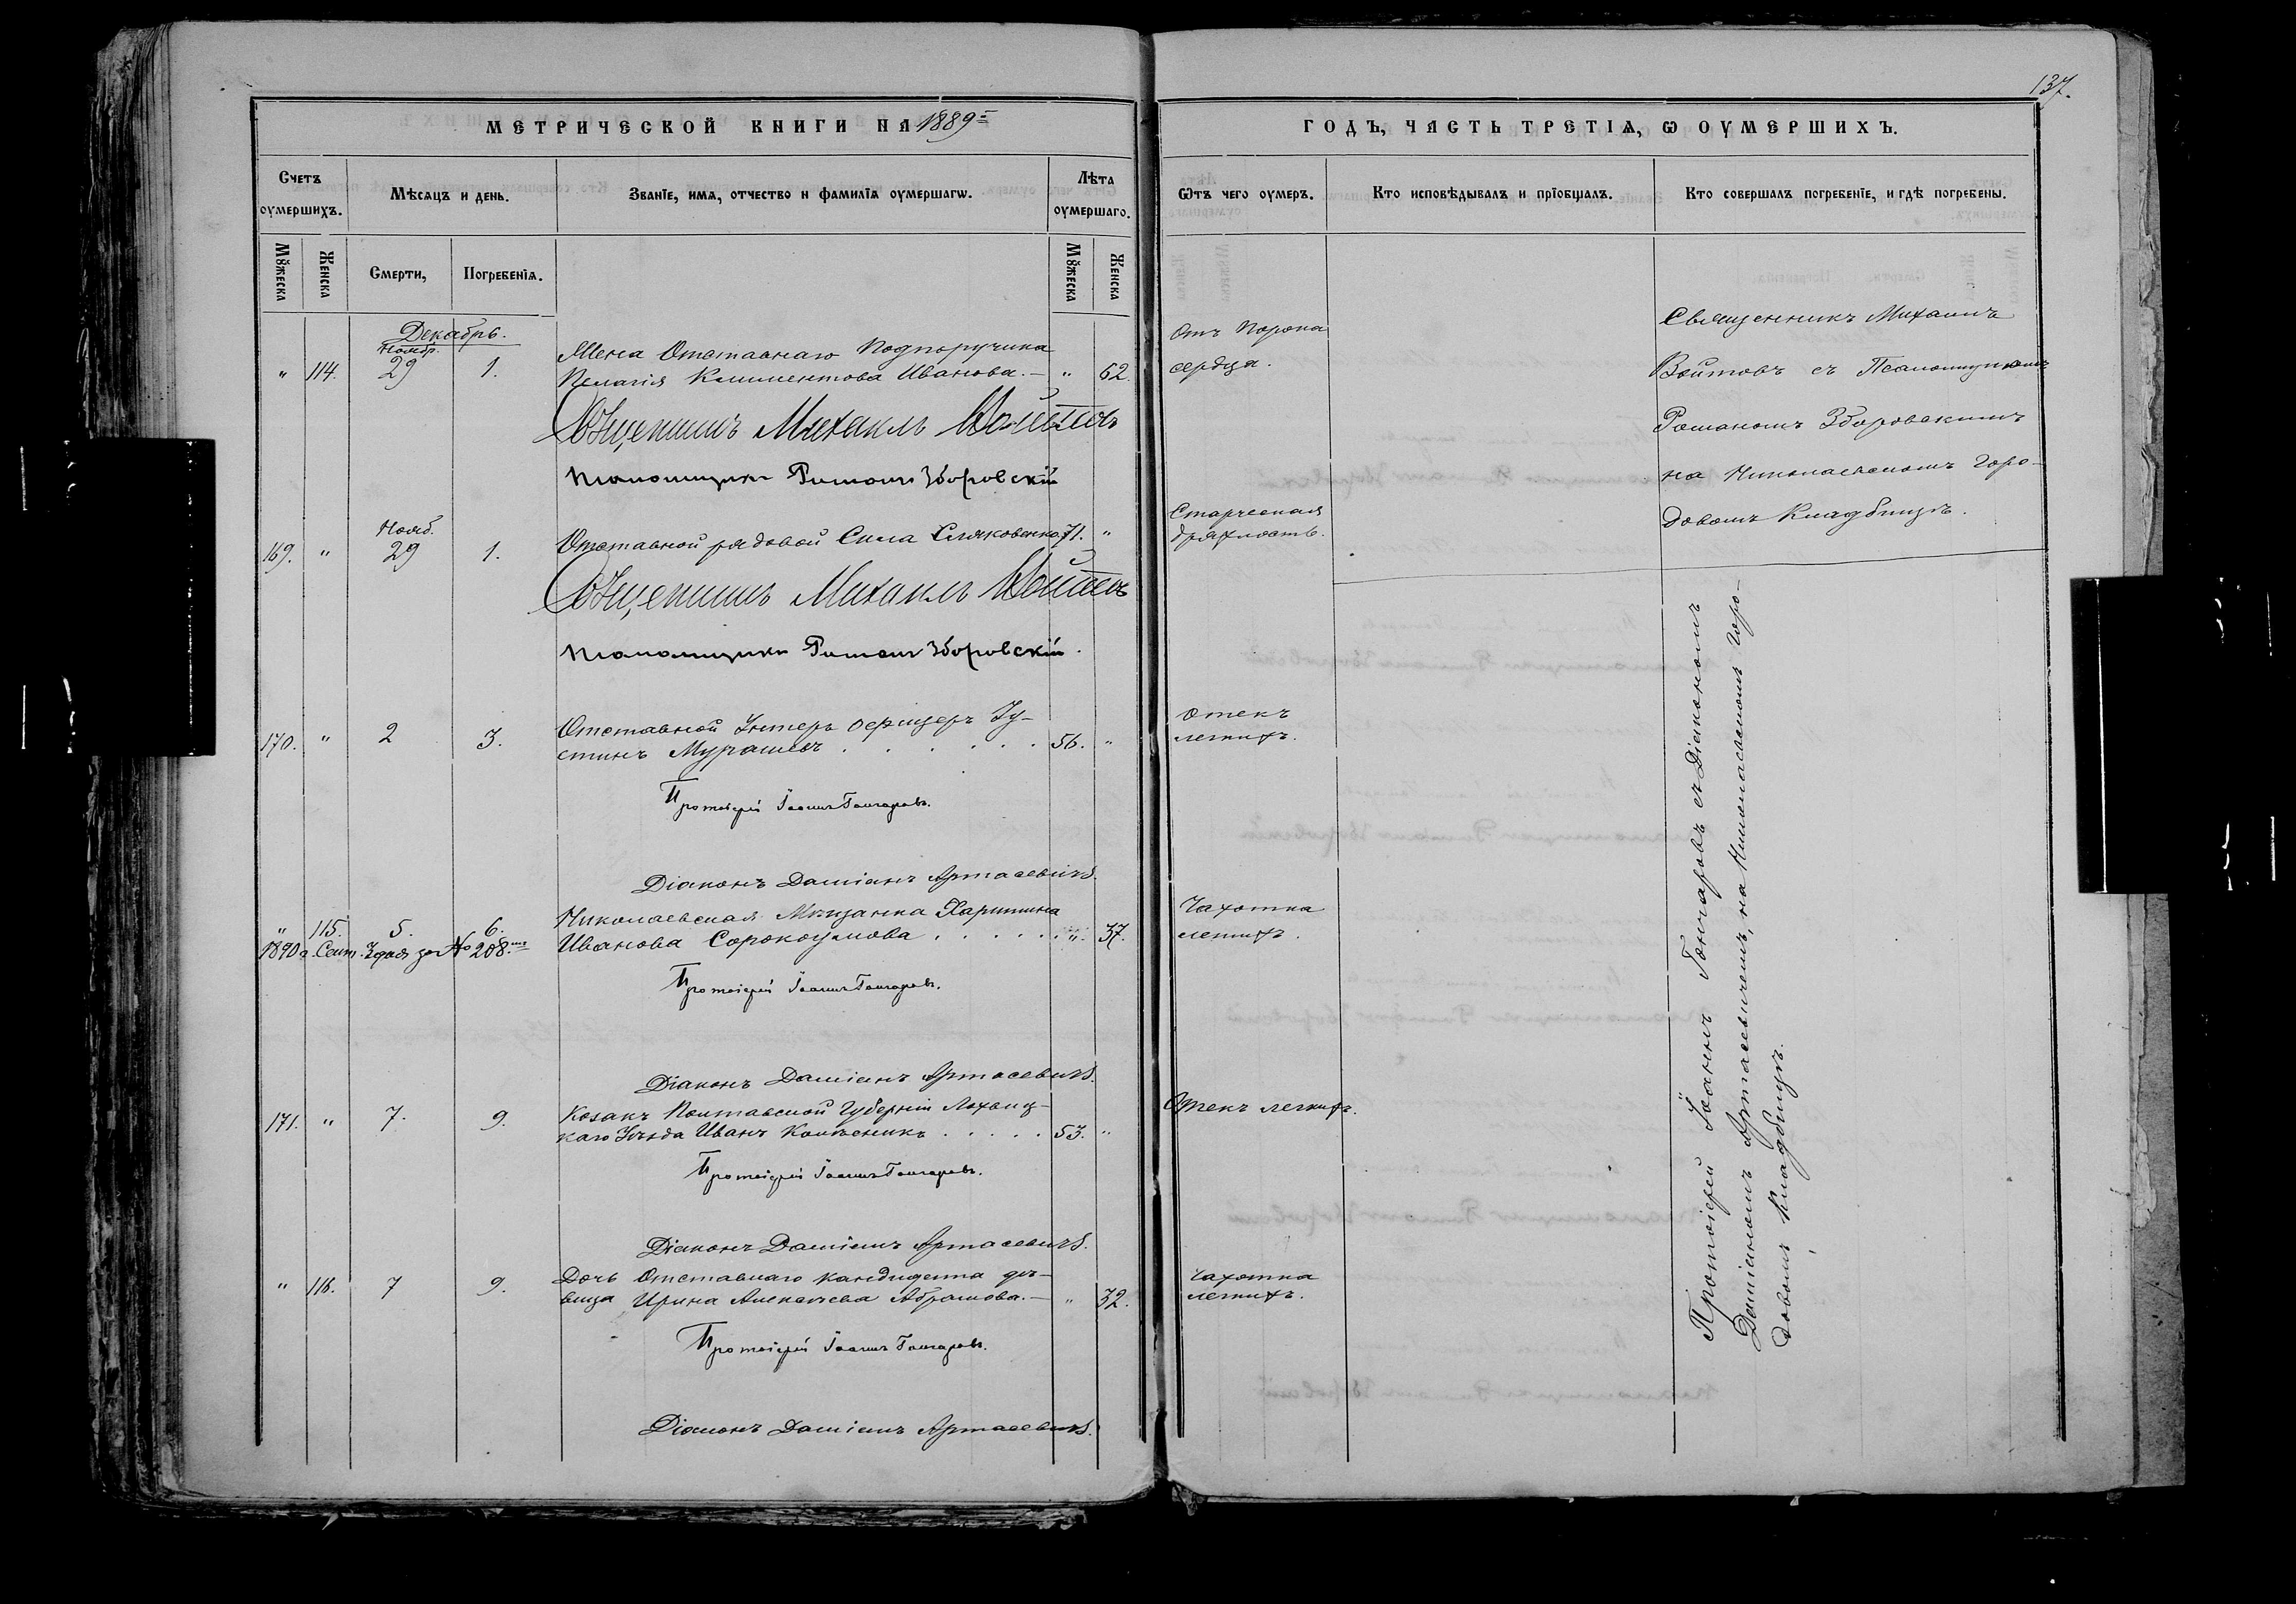 137.
МЕТРИЧЕСКОЙ КНИГИ НА 1889 ГОДЪ, ЧАСТЬ ТРЕТІѦ, Ѡ ОУМЕРШИХЪ.
Счетъ оумершихъ.
Мѣсѧцъ и день.
Званїе, имѧ, отчество и фамилїѧ оумершагѡ.
Лѣта оумершаго.
Ѿтъ чего оумеръ.
Кто исповѣдывалъ и прїобщалъ.
Кто совершалъ погребенїе, и гдѣ погребены.
Мꙋжеска
Женска
Смерти,
Погребенїѧ.
Мꙋжеска
Женска
Декабрь.
Ноябр.
" 114. 29 1.
Жена Отставнаго Подпоручика
Пелагія Климентова Иванова. — " 62.
Отъ Порока
сердца.
Священникъ Михаилъ
Войтовъ съ Псаломщикомъ
Романомъ Зборовскимъ
на Николаевскомъ Горо-
довомъ Кладбищѣ.
Священникъ Михаилъ Войтовъ
Псаломщикъ Романъ Зборовскій
Нояб.
169. " 29 1.
Отставной рядовой Сила Слюковенко 71. "
Старческая
дряхлость.
Священникъ Михаилъ Войтовъ
Псаломщикъ Романъ Зборовскій.
170. " 2 3.
Отставной Унтеръ Офицеръ Іу-
стинъ Мурашевъ . . . . . . 56. "
Отекъ
легкихъ.
Протоіерей Іоаннъ Гончаровъ.
Діаконъ Даміанъ Артасевичъ.
" 115. 5. 6.
Николаевская Мѣщанка Харитина
Иванова Сорокоумова . . . . . " 37.
1890 г. Сент. 3 дня за № 208.
Чахотка
легкихъ.
Протоіерей Іоаннъ Гончаровъ.
Діаконъ Даміанъ Артасевичъ.
171. " 7. 9.
Козакъ Полтавской Губерніи Лохвиц-
каго Уѣзда Иванъ Колѣсникъ . . . . . 53. "
Отекъ легкихъ.
Протоіерей Іоаннъ Гончаровъ.
Діаконъ Даміанъ Артасевичъ.
" 116. 7 9.
Дочь Отставнаго кандидата дѣ-
вица Ирина Алексѣева Абрамова. — " 32.
Чахотка
легкихъ.
Протоіерей Іоаннъ Гончаровъ.
Діаконъ Даміанъ Артасевичъ.
Протоіерей Іоаннъ Гончаровъ съ Діакономъ
Даміаномъ Артасевичемъ, на Николаевскомъ Горо-
довомъ Кладбищѣ.